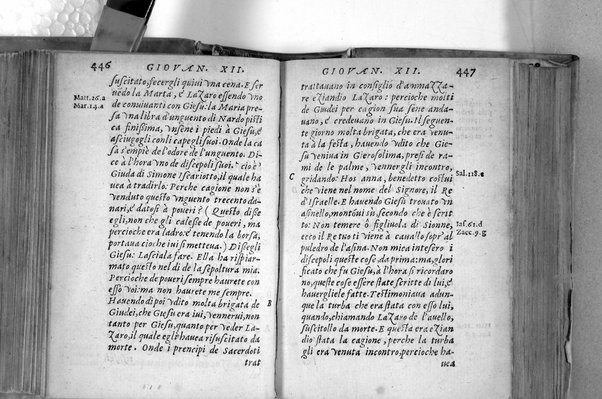 446
GIOVAN. XII.
Matt. 26. a
Mar. 14. a
suscitato, fecergli quivi una cena. E ser
vendo la Marta, è Lazaro essendo uno
de conuiuanti con Giesu: la Maria pre-
sa una libra d'unguento di Nardo pisti
ca finissima, unsene i piedi à Giesu, è
asciugogli con li capegli suoi. Onde la ca
sa s'empiè de l'odore de l'unguento. Di-
ce à l'hora uno de discepoli suoi. cio è
Giuda di Simone Iscariotto, il quale ha
uea à tradirlo: Perche cagione non s'è
uenduto questo unguento trecento da-
nari, è datosi à poueri? (Questo disse
egli, non che gli calesse de poueri, ma
percioche era ladro: è tenendo la borsa,
portaua cio che iui si metteua.) Disegli
Giesu: Lasciala fare. Ella ha rispiar-
mato questo nel dì de la sepoltura mia.
Percioche de poueri sempre haurete con
esso voi: ma non haurete me sempre.
B
Hauendo dipoi udito molta brigata de
Giudei, che Giesu era iui, vennerui, non
tanto per Giesu, quanto per veder La-
zaro, il quale egli hauea risuscitato da
morte. Onde i prencipi de Sacerdoti
trat
GIOVAN. XII.
447
trattauano in consiglio d'ammazza-
re eziandio Lazaro: percioche molti
de Giudei per cagion sua sene anda-
uano, è credeuano in Giesu. Il seguen-
te giorno molta brigata, che era venu-
ta à la festa, hauendo udito che Gie-
su veniua in Gierosolima, presi de ra-
mi de le palme, vennergli incontro,
C
gridando: Hosanna, benedetto costui
Sal. 118. e
che viene nel nome del Signore, il Re
d'Israelle. E hauendo Giesu trouato un
asinello, montoui su secondo che è scrit
to: Non temere ò figliuola di Sionne,
Isa. 62. d
ecco il Re tuo ti viene à cauallo sopr'al
Zacc. 9. g
puledro de l'asina. Non mica intesero i
discepoli queste cose da prima: ma, glori
ficato che fu Giesu, à l'hora si ricordaro
no, queste cose essere state scritte di lui, è
hauergliele fatte. Testimoniaua adun-
que la turba che era stata con esso lui,
quando, chiamando Lazaro de l'auello,
suscitollo da morte. E questa era ezian
dio stata la cagione, perche la turba
gli era venuta incontro, percioche ha-
uea